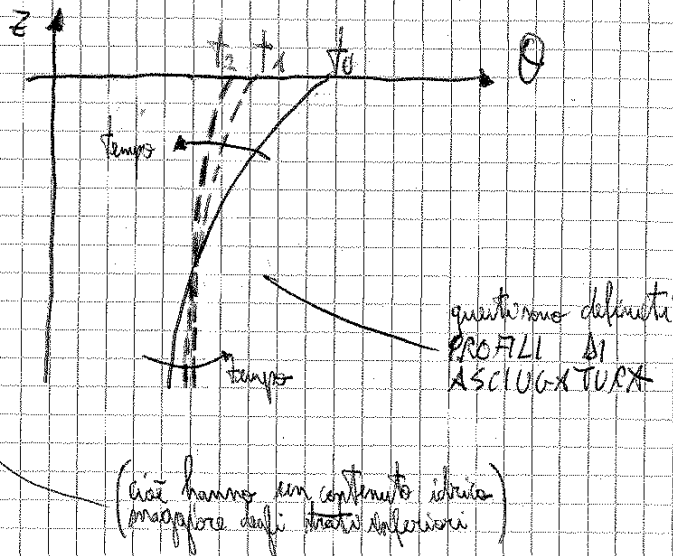 z
t2 t1 t0 θ
tempo
questi sono definiti
PROFILI DI
ASCIUGATURA
tempo
(cioè hanno un contenuto idrico
maggiore degli strati inferiori)